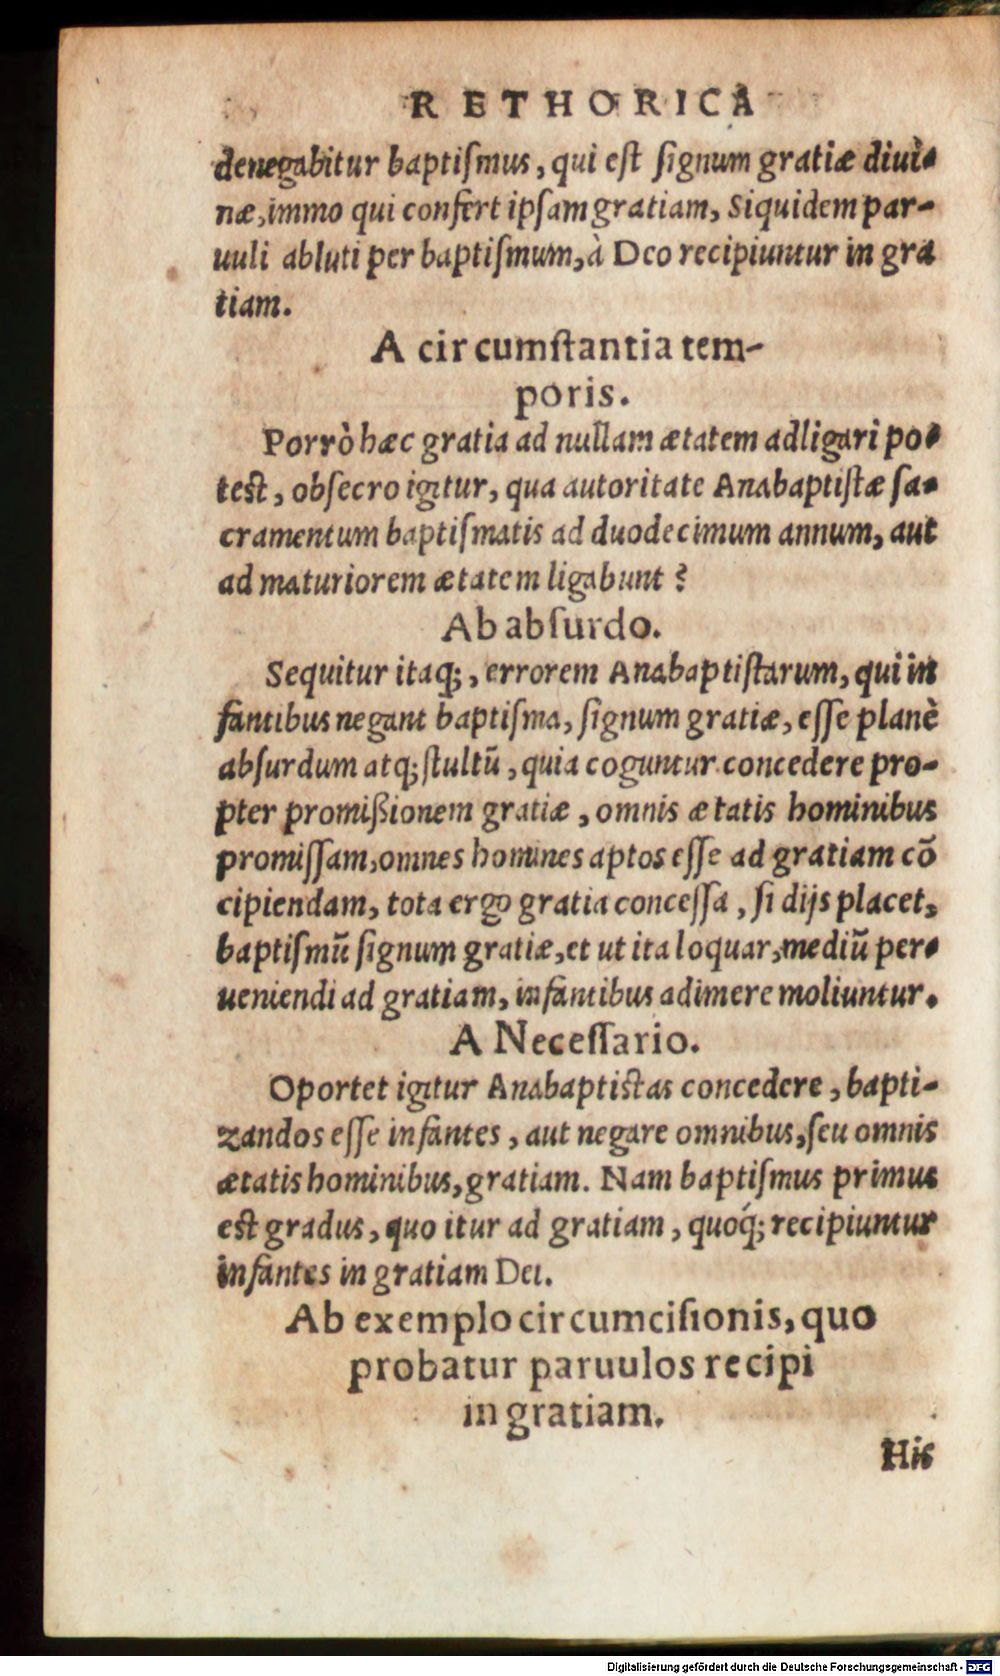 RETHORICA
denegabitur baptiſmus, qui eſt ſignum gratiæ diui-
næ, immo qui confert ipſam gratiam, Siquidem par-
uuli abluti per baptiſmum, à Deo recipiuntur in gra
tiam.
A circumſtantia tem-
poris.
Porrò hæc gratia ad nullam ætatem adligari po-
teſt, obſecro igitur, qua autoritate Anabaptiſtæ ſa-
cramentum baptiſmatis ad duodecimum annum, aut
ad maturiorem ætatem ligabunt?
Ab abſurdo.
Sequitur itaq;, errorem Anabaptiſtarum, qui in
fantibus negant baptiſma, ſignum gratiæ, eſſe planè
abſurdum atq; ſtultū, quia coguntur concedere pro-
pter promißionem gratiæ, omnis ætatis hominibus
promiſſam, omnes homines aptos eſſe ad gratiam cō
cipiendam, tota ergo gratia conceſſa, ſi dijs placet,
baptiſmū ſignum gratiæ, et ut ita loquar, mediū per-
ueniendi ad gratiam, infantibus adimere moliuntur.
A Neceſſario.
Oportet igitur Anabaptiſtas concedere, bapti-
zandos eſſe infantes, aut negare omnibus, ſeu omnis
ætatis hominibus, gratiam. Nam baptiſmus primus
eſt gradus, quo itur ad gratiam, quoq́; recipiuntur
infantes in gratiam Dei.
Ab exemplo circumciſionis, quo
probatur paruulos recipi
in gratiam.
His
Digitalisierung gefördert durch die Deutsche Forschungsgemeinschaft - DFG